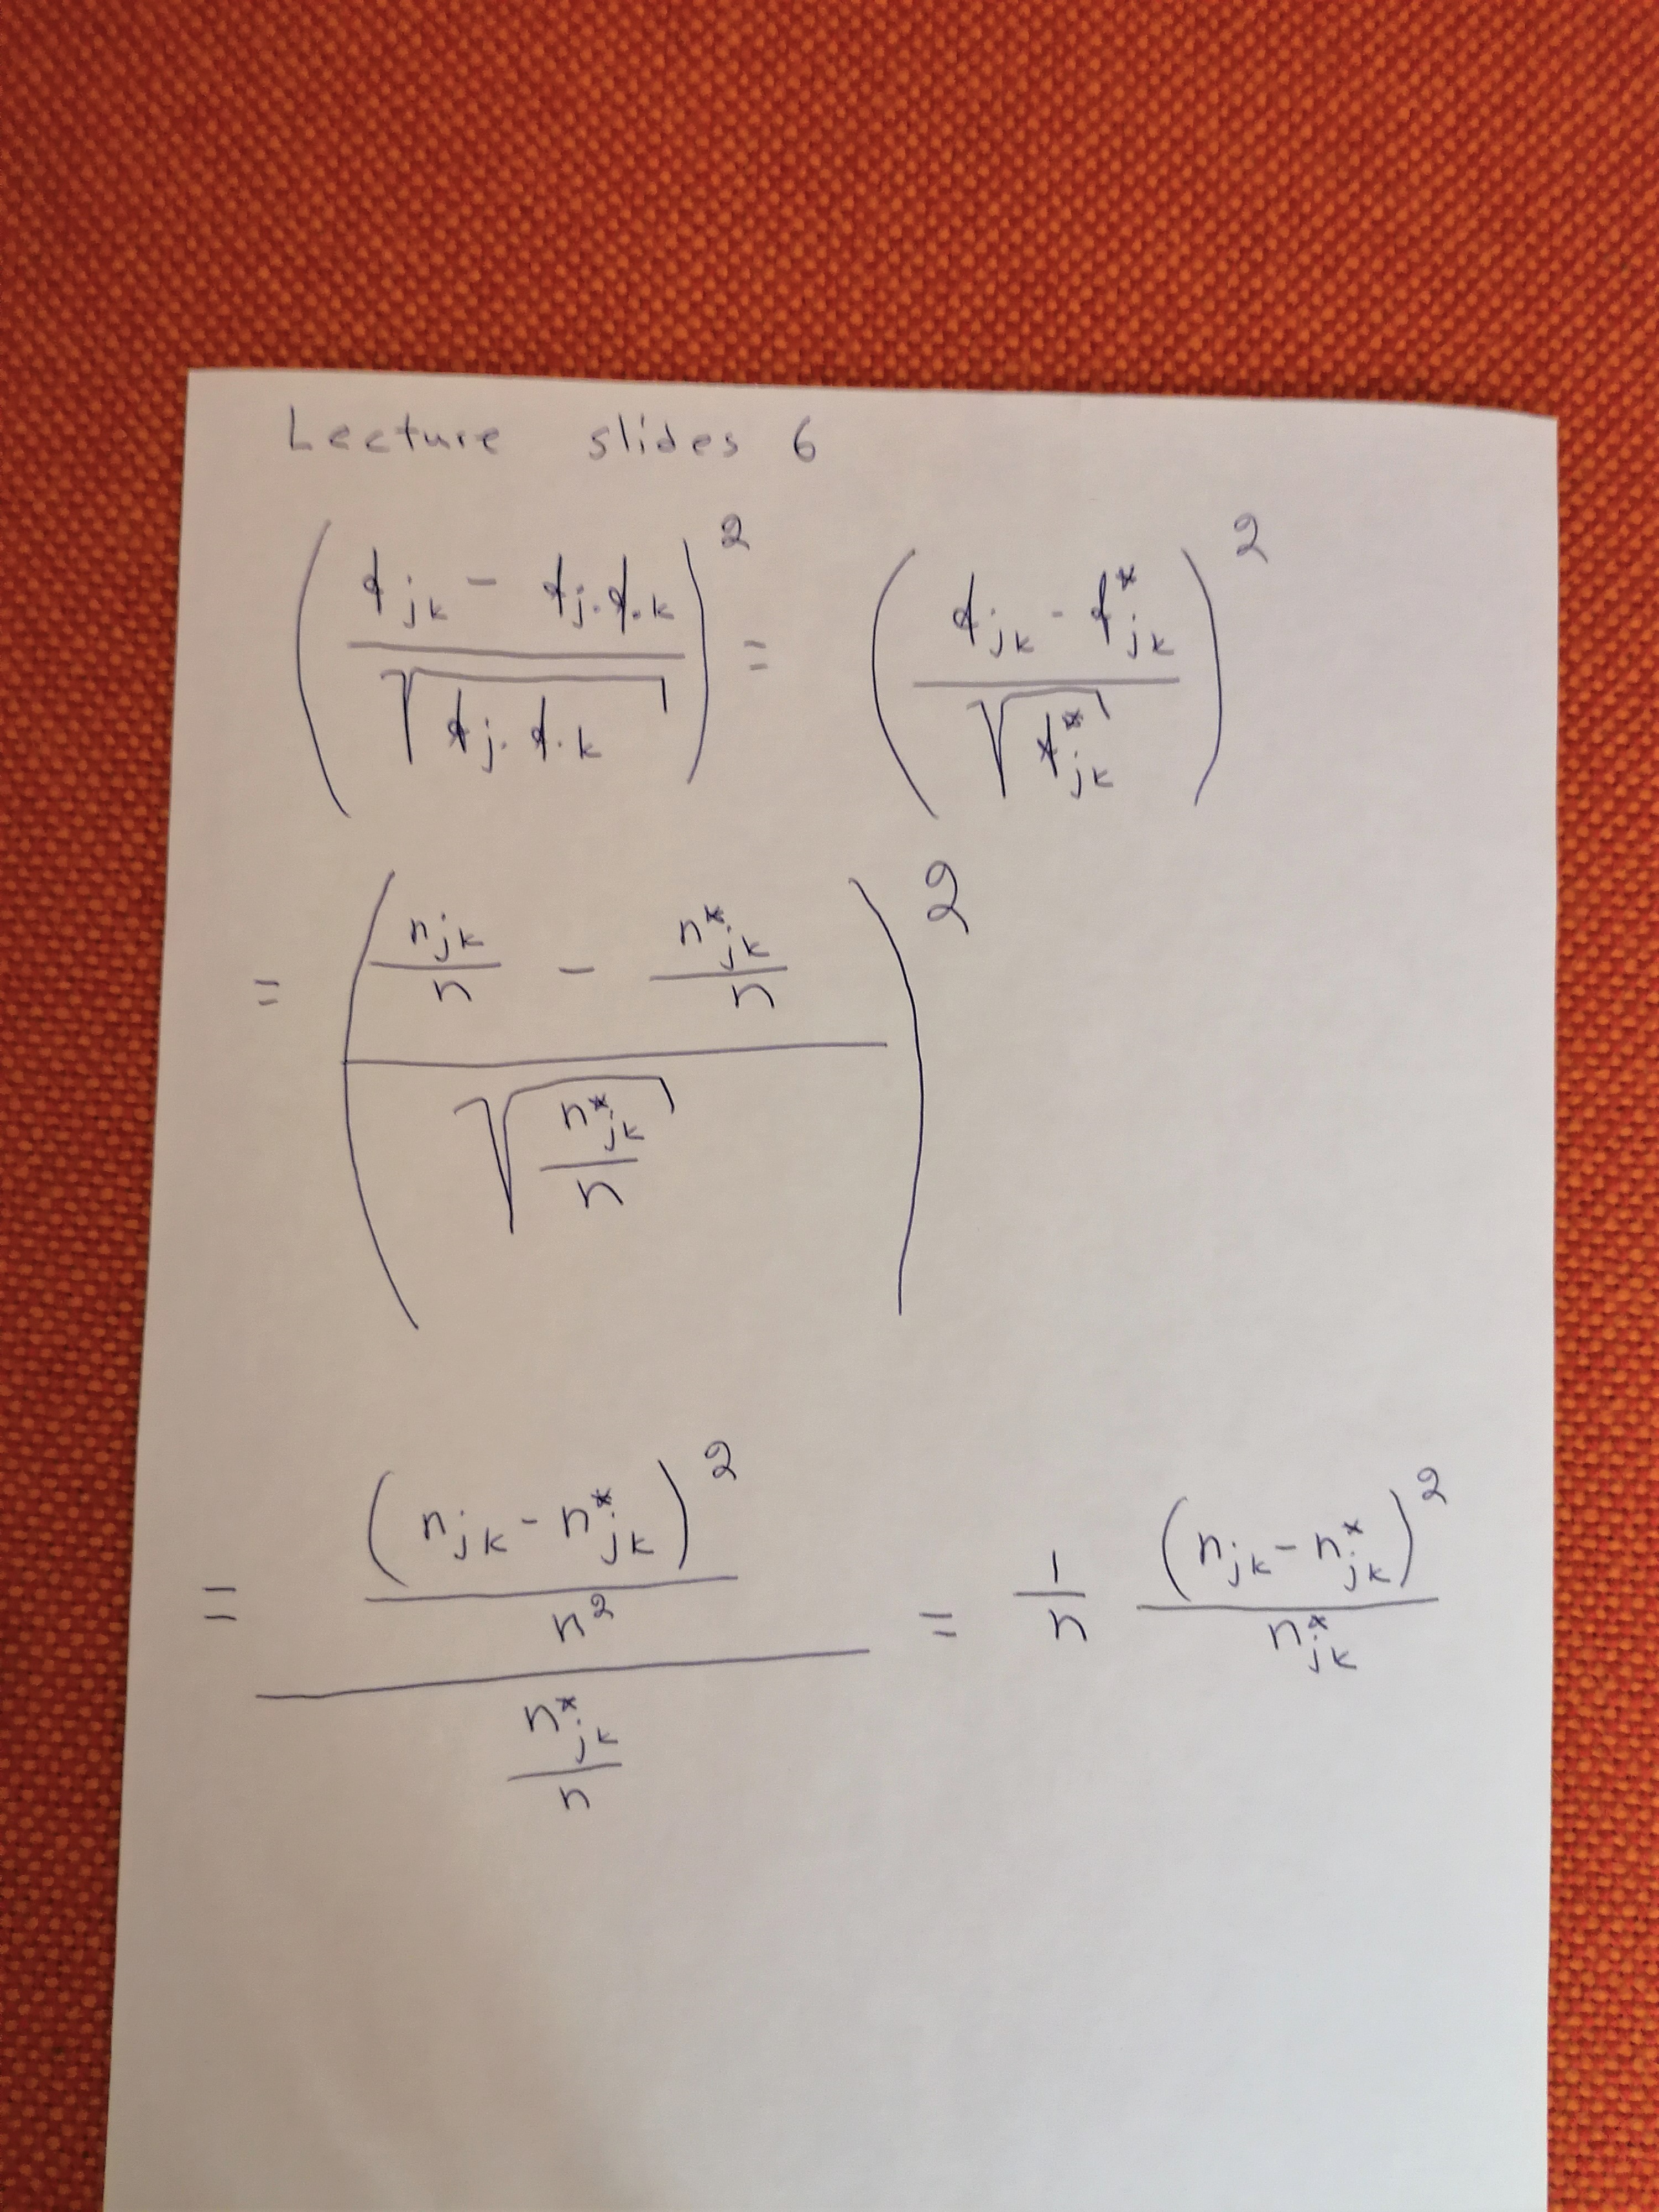 Lecture slides 6
( (f_jk - f_j. f_.k) / √(f_j. f_.k) )^2 = ( (f_jk - f*_jk) / √(f*_jk) )^2
= ( (n_jk / n - n*_jk / n) / √(n*_jk / n) )^2
= ( (n_jk - n*_jk)^2 / n^2 ) / ( n*_jk / n ) = 1/n (n_jk - n*_jk)^2 / n*_jk